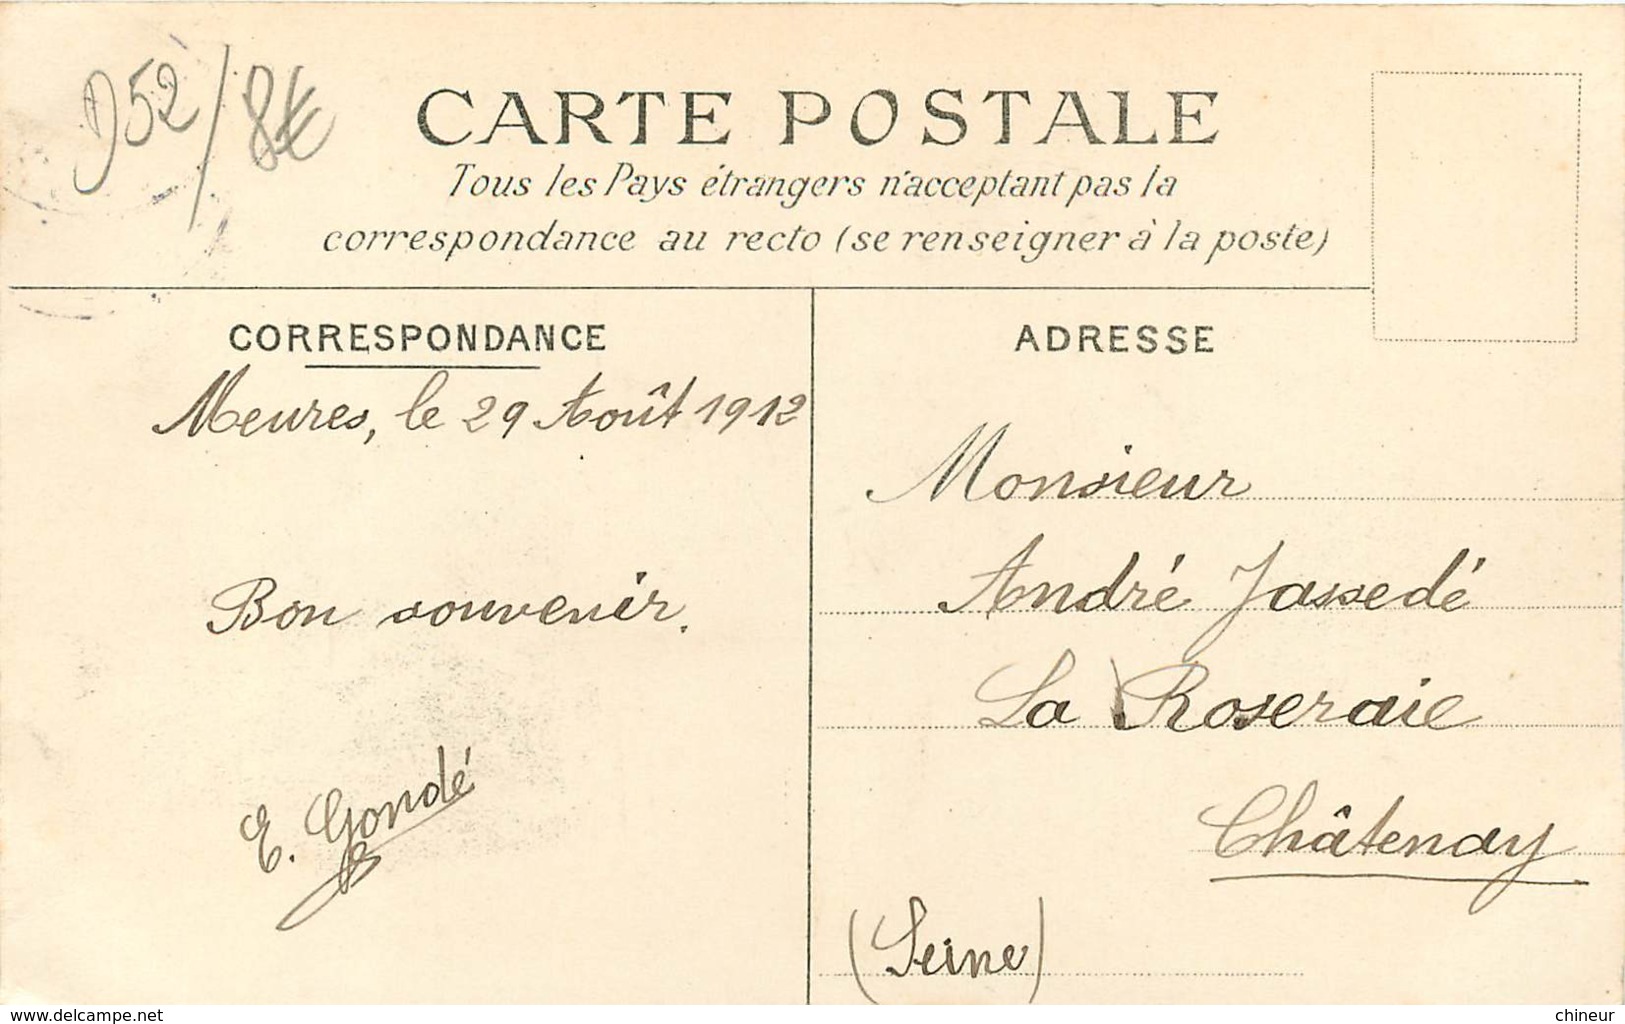 D52/8€
CARTE POSTALE
Tous les Pays étrangers n'acceptant pas la
correspondance au recto (se renseigner à la poste)
CORRESPONDANCE
Meures, le 29 Août 1912
Bon souvenir.
E. Gondé
ADRESSE
Monsieur
André Jassedé
La Roseraie
Châtenay
(Seine)
www.delcampe.net
chineur